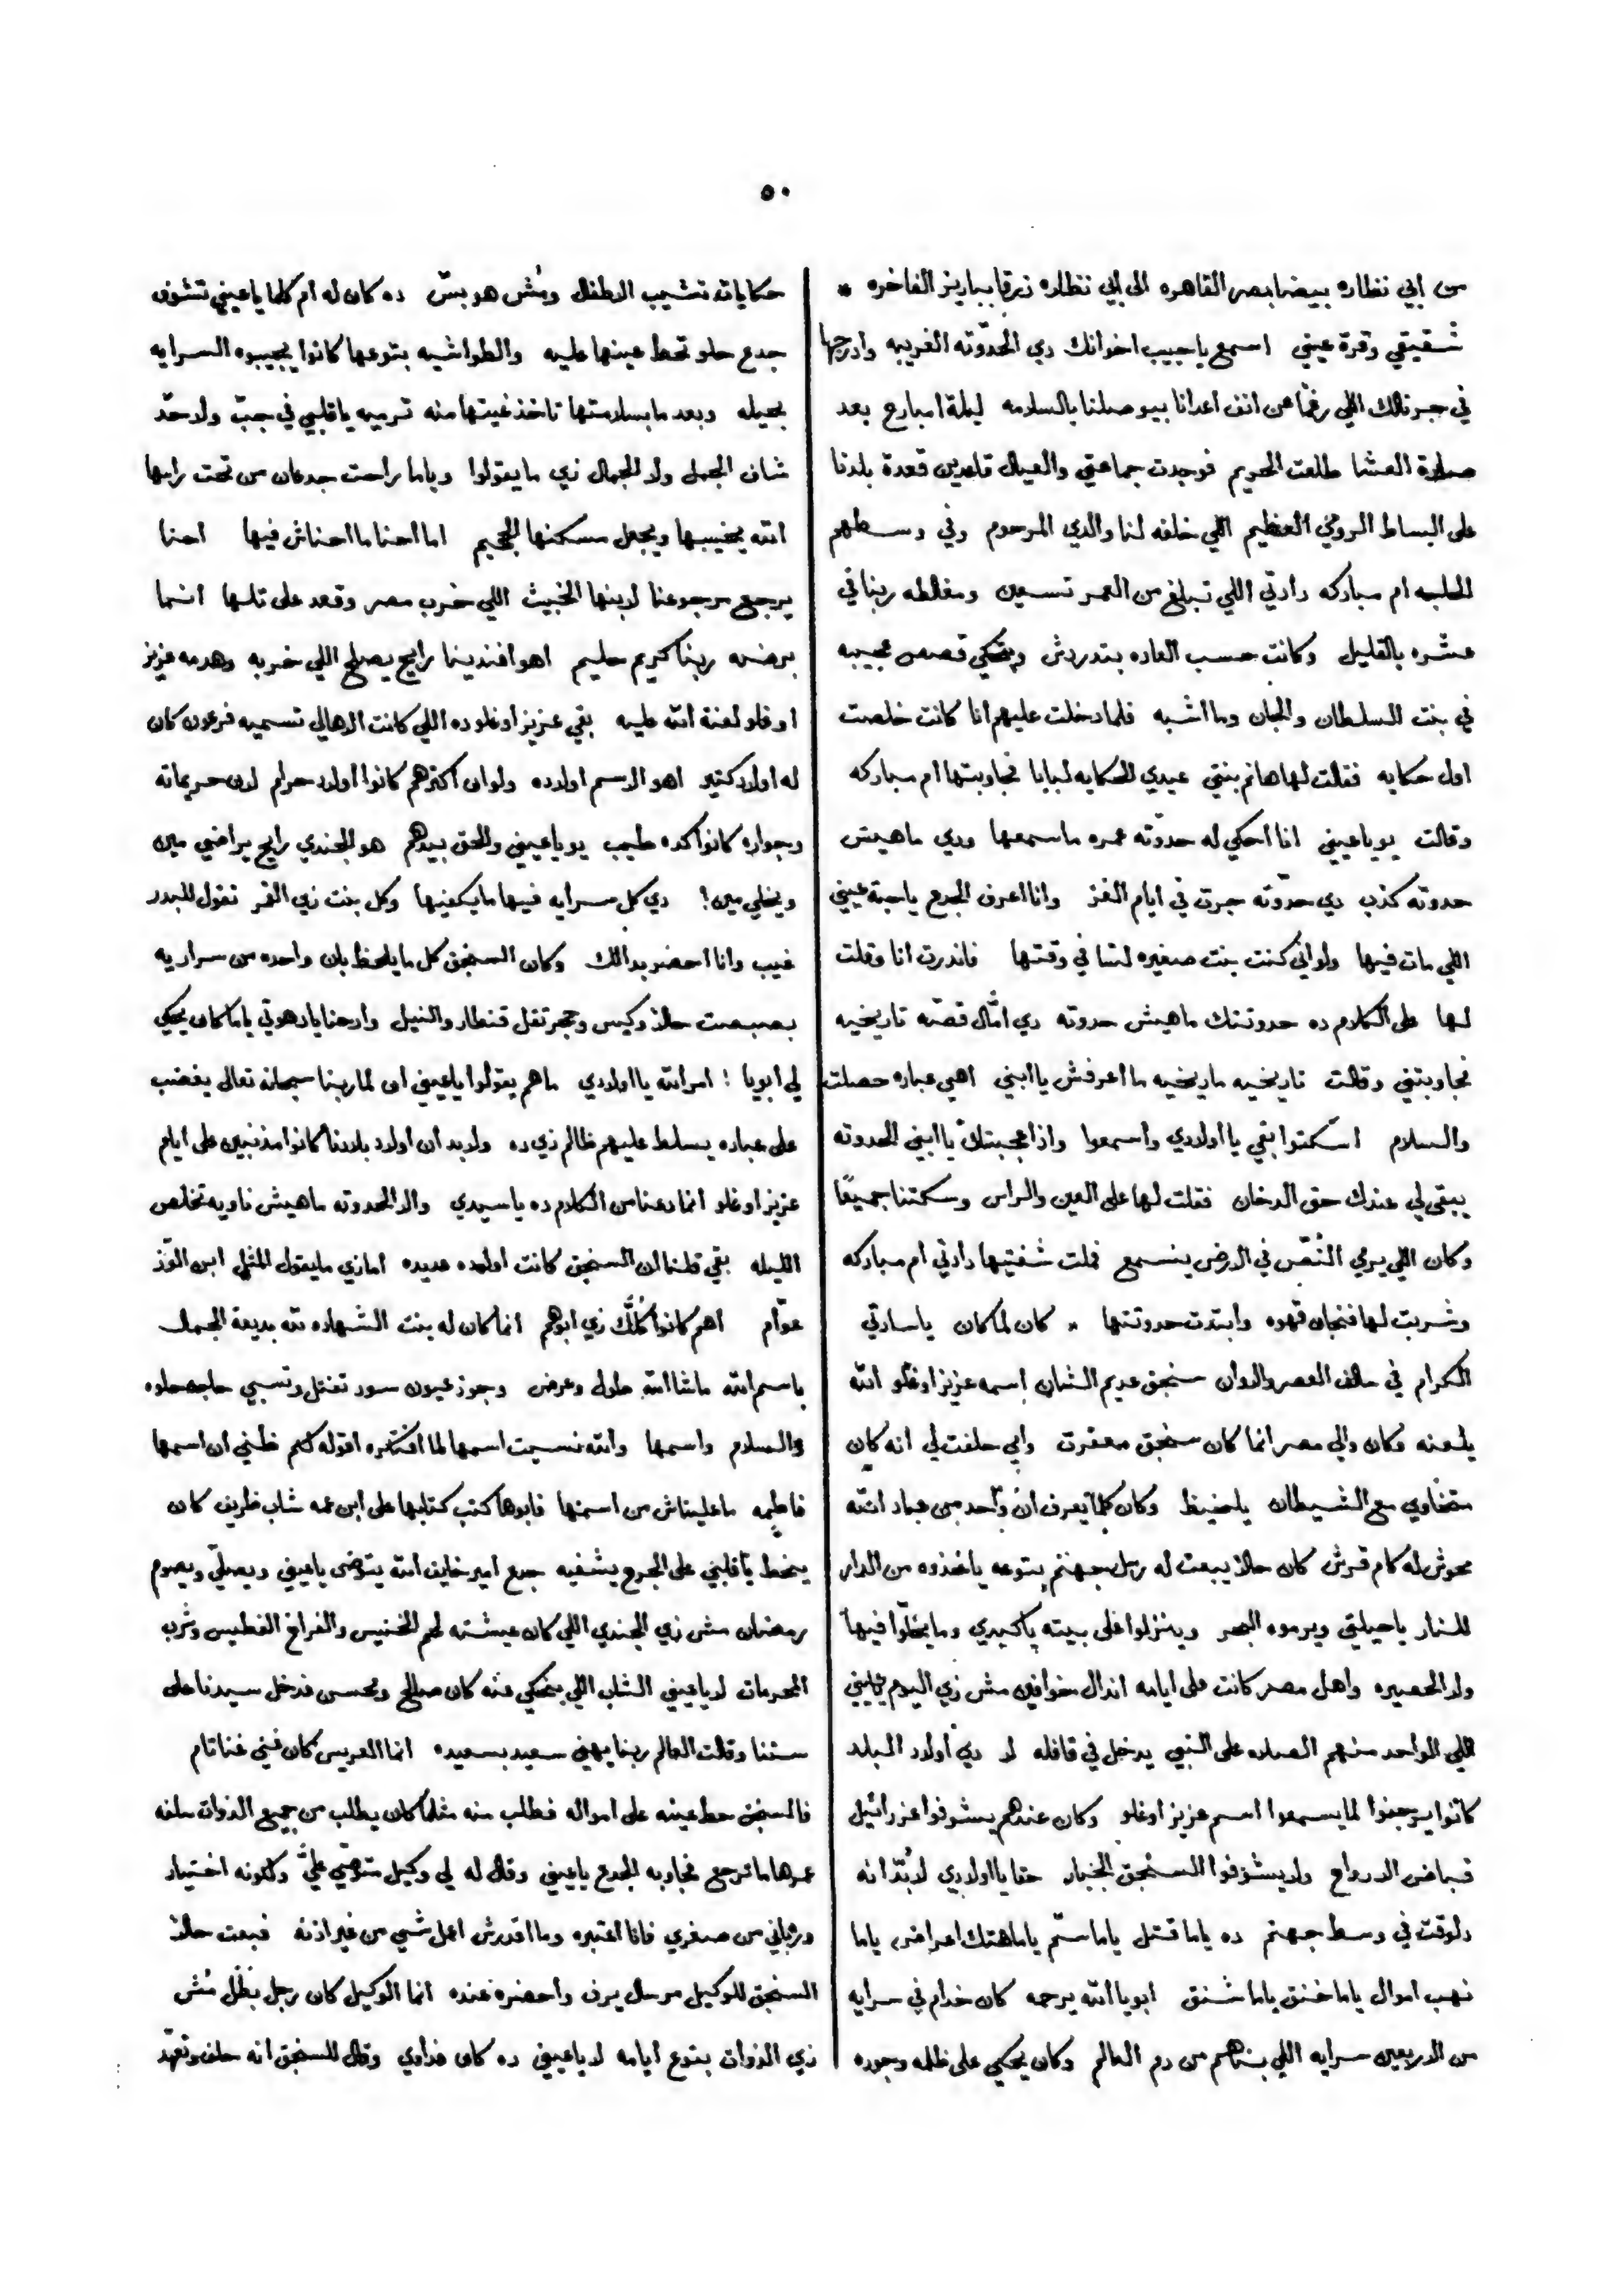 ٥٠
من ابي نظاره بيضا بمصر القاهره الى ابي نظاره زرقا بباريز الفاخره *
شقيقي وقرة عيني اسمع ياحبيب اخوانك دي الحدّوته الغريبه وادرجها
في جرنالك اللي رغمًا عن انف اعدانا بيوصلنا بالسلامه ليلة امبارح بعد
صلاة العشا طلعت الحريم فوجدت جماعتي والعيال قاعدين قعدة بلدنا
على البساط الرومي العظيم اللي خلفه لنا والدي المرحوم وفي وسطهم
الحاجه ام مباركه دادتي اللي تبلغ من العمر تسعين ومغالطه ربنا في
عشره بالقليل وكانت حسب العاده بتدردش وبتحكي قصص عجيبه
في بنت السلطان والجان وما اشبه فلما دخلت عليهم انا كانت خلصت
اول حكايه فقالت لها هانم بنتي عيدي الحكايه لبابا فجاوبتها ام مباركه
وقالت يو ياعيني انا احكي له حدوّته عمره ماسمعها ودي ماهيش
حدوته كذب دي حدّوته جرت في ايام الغز وانا اعرف الجدع ياحبة عيني
اللي مات فيها ولو اني كنت بنت صغيره لسّا في وقتها فاندرت انا وقلت
لها على الكلام ده حدوتتك ماهيش حدوته دي امّال قصّه تاريخيه
فجاوبتني وقالت تاريخيه ماريخيه ما اعرفش يا ابني اهي عباره حصلت
والسلام اسّكتوا بقي يا اولادي واسمعوا واذا عجبتك يا ابني الحدوته
يبقى لي عندك حق الدخان فقلت لها على العين والراس وسكتنا جميعًا
وكان اللي يرمي النُصّ في الارض ينسمع فملت شفتيها دادتي ام مباركه
وشربت لها فنجان قهوه وابتدت حدوتتها * كان لما كان ياسادتي
الكرام في سالف العصر والاوان سنجق عديم الشان اسمه عزيز اوغلو الله
يلعنه وكان والي مصر انما كان سنجق معفرت وابي حلفت لي انه كان
متخاوي مع الشيطان ياحفيظ وكان كلما يعرف ان واحد من عباد الله
محوش له كام قرش كان حالاً يبعت له رسل جهنم بتوعه ياخذوه من الدار
للنار ياحيلتي ويرموه البحر وينزلوا على بيته ياكبدي وما يخلّوا فيها
ولا الحصيره واهل مصر كانت على ايامه اندال خوافين مش زي اليوم ياابني
اللي الواحد منهم الصلاه على النبي يدخل في قافله لا دي اولاد البلد
كانوا يرجفوا لما يسمعوا اسم عزيز اوغلو وكان عندهم يشوفوا عزرائيل
قباض الارواح ولا يشوفوا السنجق الجبار حقا يا اولادي لابُدّ انه
دلوقت في وسط جهنم ده ياما قتل ياما سمّ ياما هتك اعراض ياما
نهب اموال ياما خنق ياما شنق ابويا الله يرحمه كان خدّام في سرايه
من الاربعين سرايه اللي بناهم من دم العالم وكان يحكي على ظلمه وجوره
حكايات تشيب الاطفال ومُش هو بسّ ده كان له ام كلما ياعيني تشوف
جدع حلو تحط عينها عليه والطواشيه بتوعها كانوا يجيبوه السرايه
بحيله وبعد ما بسلامتها تاخذ غيتها منه ترميه ياقلبي في جبّ ولا حدّ
شاف الجمل ولا الجمال زي ما يقولوا وياما راحت جدعان من تحت راسها
الله يخيبها ويجعل مسكنها الجحيم اما احنا ما احناش فيها احنا
يرجع مرجوعنا لابنها الخبيث اللي خرب مصر وقعد على تلها انما
برضه ربنا كريم حليم اهو افندينا رايح يصلح اللي خربه وهدمه عزيز
اوغلو لعنة الله عليه بقي عزيز اوغلو ده اللي كانت الاهالي تسميه فرعون كان
له اولاد كتير اهو الاسم اولاده ولو ان اكثرهم كانوا اولاد حرام لان حريماته
وجواره كانوا كده طيب يو ياعيني والحق بيدهم هو الجندي رايح يراضي مين
ويخلي مين! دي كل سرايه فيها ما يكفيها وكل بنت زي القمر تقول للبدر
غيب وانا احضر بدالك وكان السنجق كل ما يلحظ بان واحده من سراريه
بصبصت حالاً وكيس وحجر تقل قنطار والنيل وارحنا يادهوتي ياما كان يحكي
لي ابويا ! امر الله يا اولادي ما هم يقولوا ياعيني ان لما ربنا سبحانه تعالى يغضب
على عباده يسلط عليهم ظالم زي ده ولابد ان اولاد بلادنا كانوا مذنبين على ايام
عزيز اوغلو انما دعنا من الكلام ده ياسيدي والا الحدوته ماهيش ناويه تخلص
الليله بقي قلنا ان السنجق كانت اولاده عديده اما زي ما يقول المثل ابن الوّز
عوّام اهم كانوا كُلَّك زي ابوهم انما كان له بنت الشهاده لله بديعة الجمال
باسم الله ماشا الله طول وعرض وجوز عيون سود تقتل وتسبي حاجه حلوه
والسلام واسمها والله نسيت اسمها لما افتكره اقوله لكم ظني ان اسمها
فاطمه ما علينا ش من اسمها فابوها كتب كتابها على ابن عمه شاب ظريف كان
ينحط ياقلبي على الجرح يشفيه جدع امير خايف الله يتوضى ياعيني ويصلّي ويصوم
رمضان مش زي الجندي اللي كان عيشته لحم الخنيس والفراخ الفطيس وشرب
المحرمات لا ياعيني الشاب اللي بنحكي عنه كان صالح ومحسن فدخل سيدنا على
ستنا وقالت العالم ربنا يهني سعيد بسعيده انما العريس كان غني غنا تام
فالسنجق حط عينه على امواله فطلب منه مثلما كان يطلب من جميع الذوات سلفه
عمرها ما ترجع فجاوبه الجدع ياعيني وقال له لي وكيل متوصّي عليّ ولكونه اختيار
ورباني من صغري فانا اعتبره وما اقدرش اعمل شي من غير اذنه فبعت حالاً
السنجق للوكيل مرسال يرف واحضره عنده انما الوكيل كان رجل بَطَل مُش
زي الذوات بتوع ايامه لا ياعيني ده كان فداوي وقال للسنجق انه حلف وتعهّد